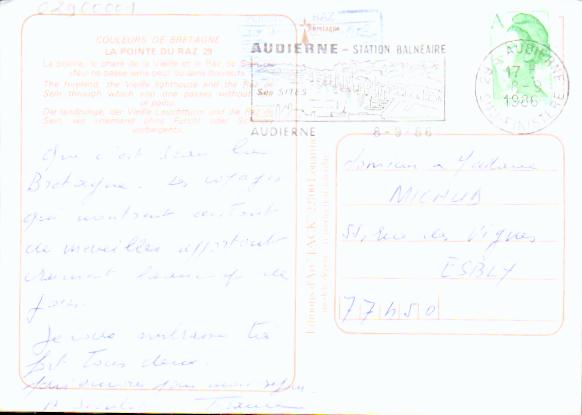 COULEURS DE BRETAGNE
LA POINTE DU RAZ 29
La pointe, le phare de la Vieille et le Raz de Sein, où
«Nul ne passe sans peur ou sans douleur».
The foreland, the Vieille lighthouse and the Raz de
Sein through which one never passes without
or pain».
Die landzunge, der Vieille Leuchtturm und die Raz de
Sein, wo niemand ohne Furcht oder
vorbergeht».
AUDIERNE - STATION BALNEAIRE
Ses SITES
AUDIERNE 8-9-86
A
29 AUDIERNE
17
8-9
1986
FINISTERE
Que c'est beau la
Bretagne. Les voyages
qui montrent autant
de merveilles apportent
vraiment beaucoup de
joies.
Je vous embrasse très
fort tous deux.
Monsieur & Madame
MICHUB
51, rue des Vignes
ESBLY
77450
Editions d'Art JACK